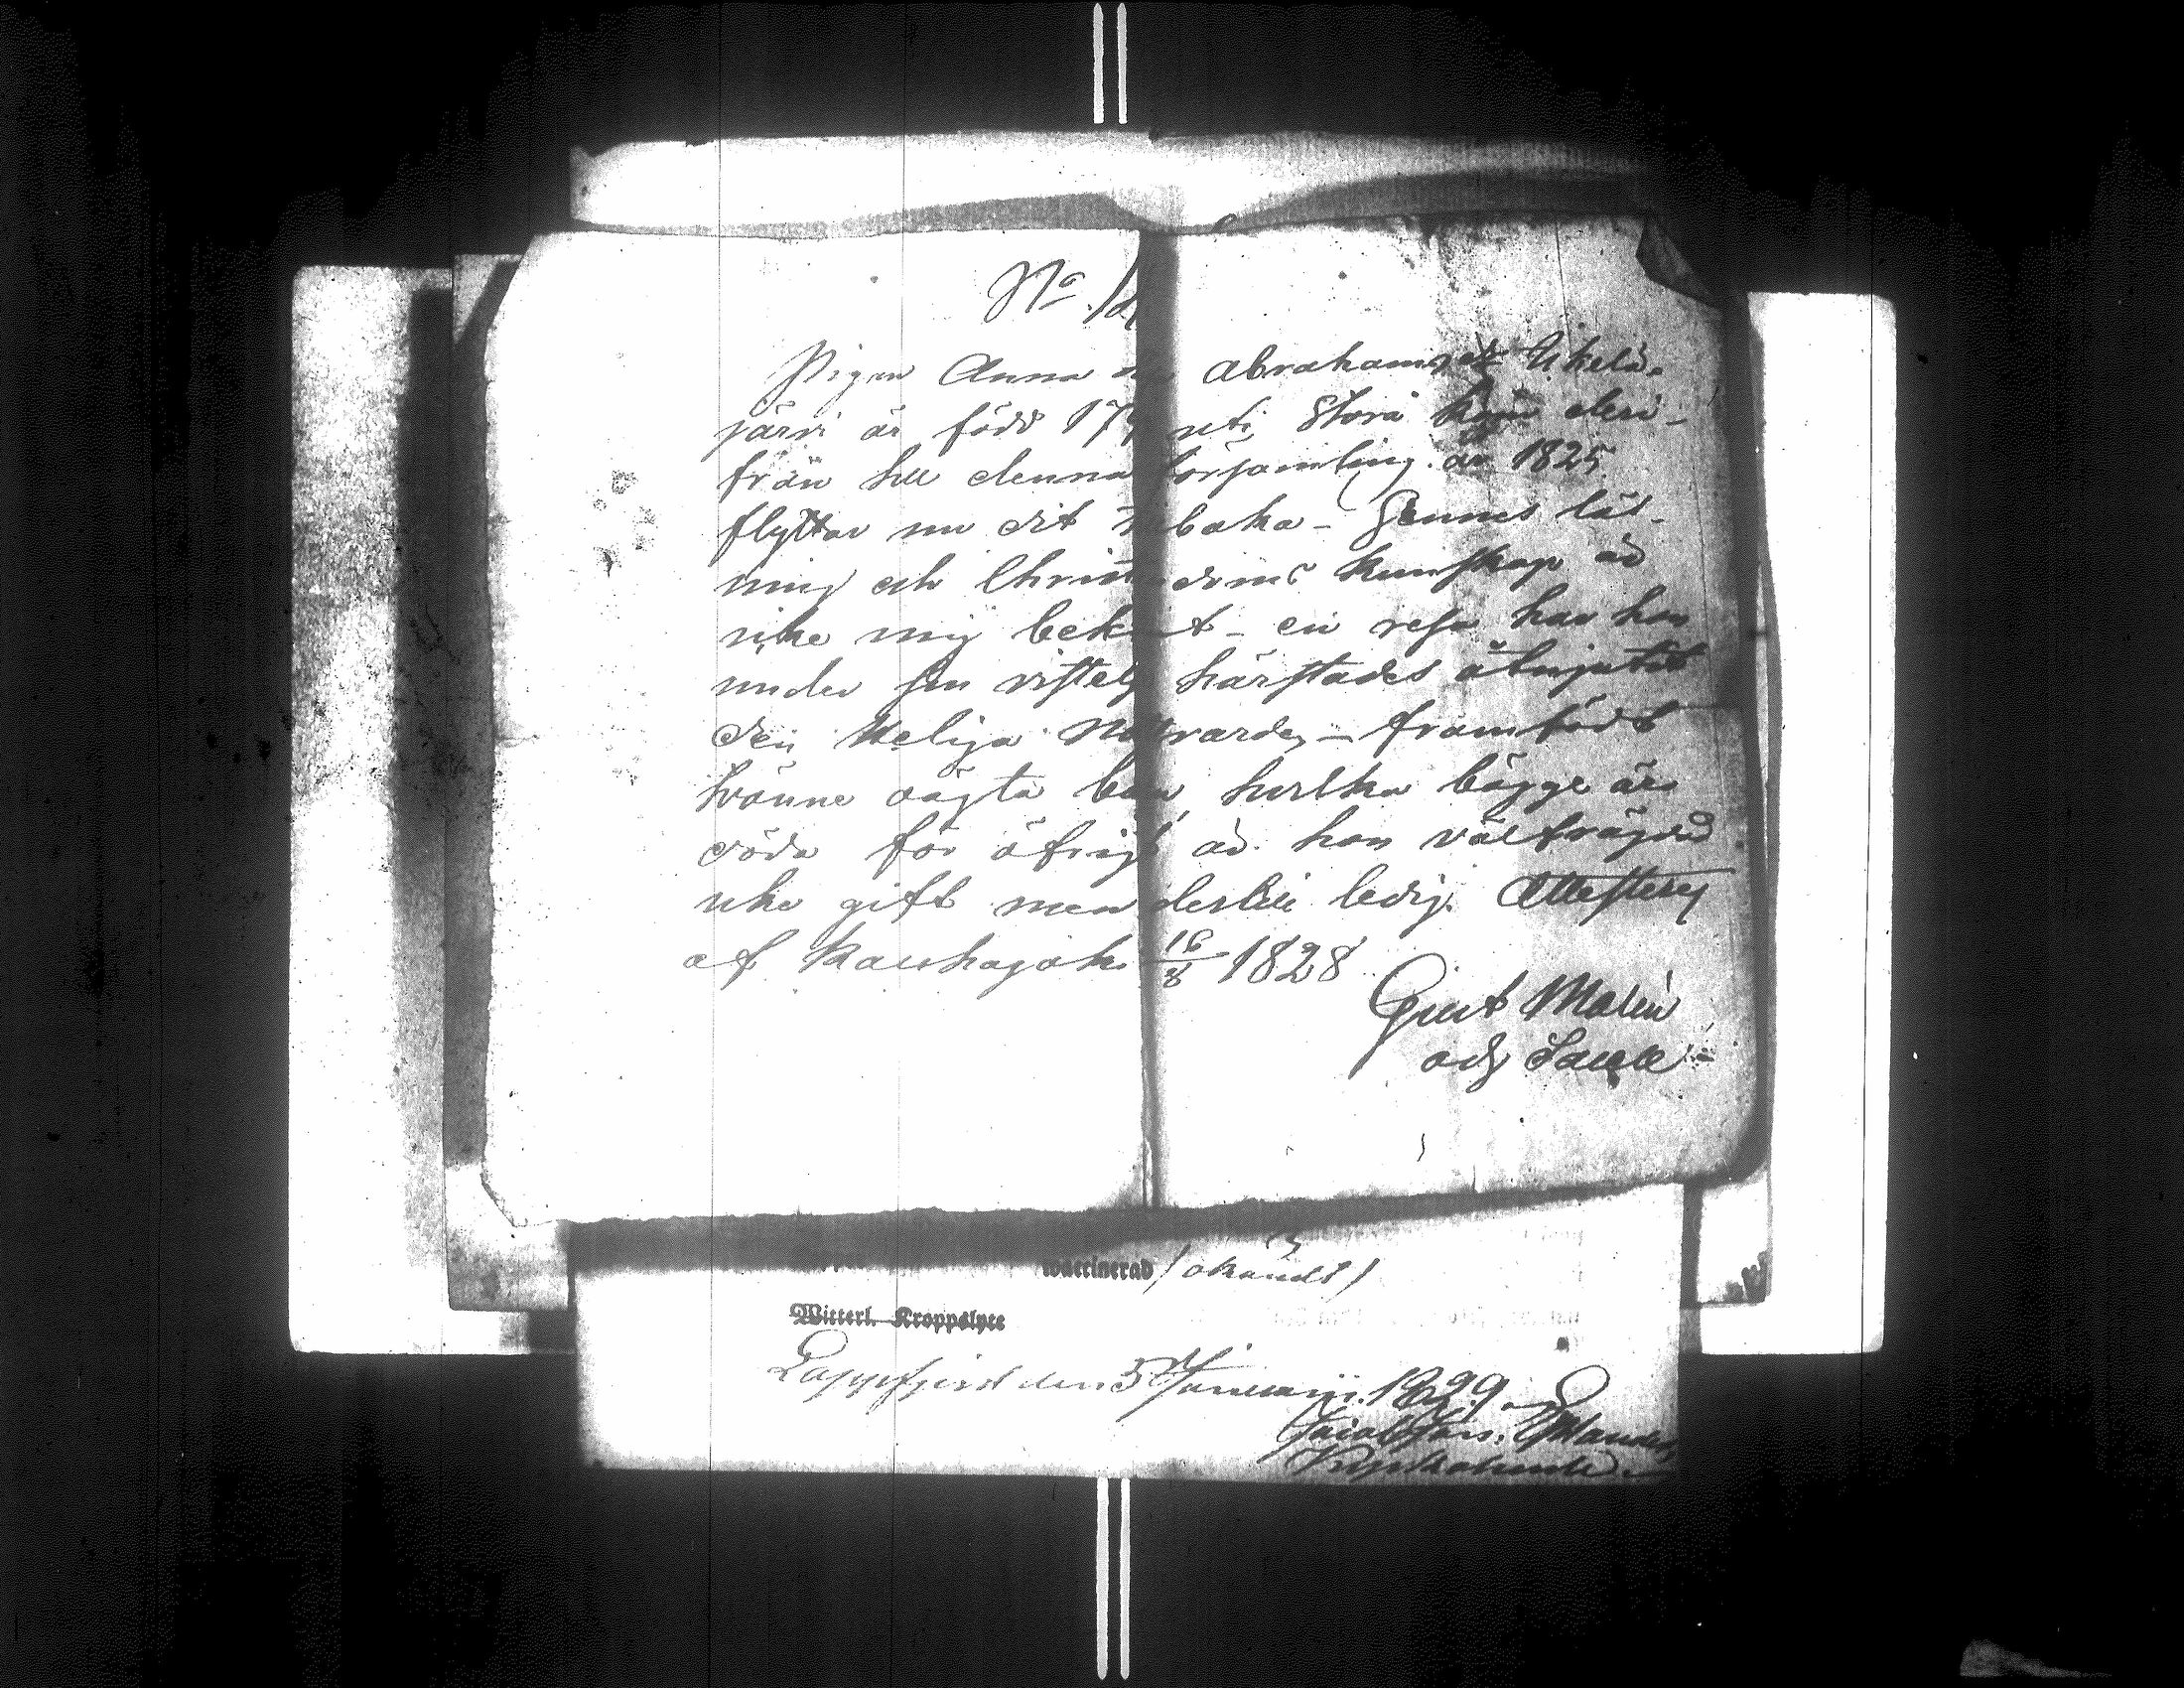 No 12
Pigan Anna Abrahamsdr Ukela-
järvi är född 179 uti Storå kom deri-
från till denna församling år 1825
flyttar nu dit tilbaka - Hennes läs-
ning och Christendoms kunskap äd
icke mig bekant - en resa har hon
under sin vistelse härstädes åtnjutit
den Heliga Nattvarden - framfödt
tvänne oägta barn, hvilka bägge äro
döda för öfrigt äd hon välfrägdad
icke gift men derstill ledig. Attesterar
af Kauhajoki 16/8 1828
Gust Malin
adj Sacell
wacinerad /okändt/
Witterl. Kroppslyte
Lappfjerd den 3 Januarii 1829